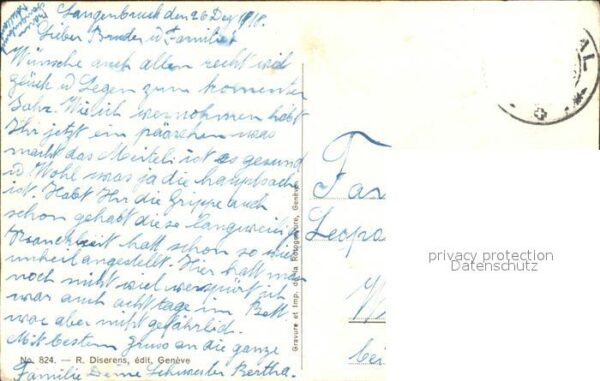 Langenbruck den 26 Dez 1918.
Lieber Bruder u Familie
Wünsche auch allen recht viel
glück u Segen zum komenten
Jahr. Wie ich vernohmen habt
Ihr jetzt ein päarchen was
macht das Meiteli ist es gesund
u Wohl was ja die hauptsache
ist. Habt Ihr die Grippe auch
schon gehabt diese langweilige
Kranckheit hatt schon so viel
unheil angestellt. Hier hatt man
noch niht viel verspürt ich
war auch acht tage im Bett
war aber niht gefährlid.
Mit bestem Gruss an die ganze
Familie Deine Schwester Bertha.
No. 824. — R. Diserens, édit, Genève
Gravure et Imp. de la Rotogravure, Genève
AL
Fa
Leopo
W
bei
privacy protection
Datenschutz